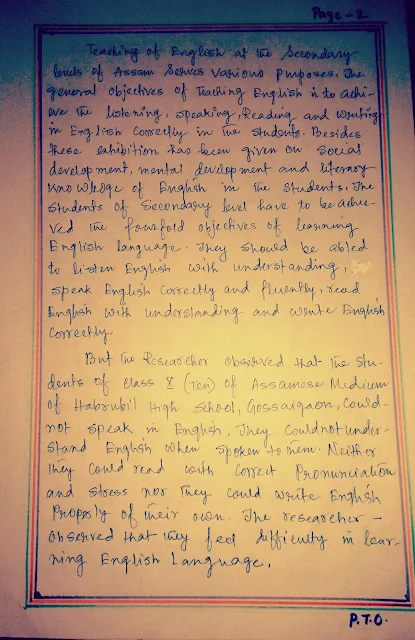 Page - 2
Teaching of English at the Secondary
levels of Assam Serves various purposes. The
general objectives of Teaching English is to achi-
eve the listening, speaking, Reading and writing
in English Correctly in the students. Besides
these exhibition has been given on Social
development, mental development and literary
knowledge of English in the students. The
Students of Secondary level have to be achie-
ved the fourfold objectives of learning
English language. They should be abled
to listen English with understanding,
speak English Correctly and fluently, read
English with understanding and write English
Correctly.
But the Researcher observed that the Stu-
dents of class X (Ten) of Assamese Medium
of Habrubil High School, Gossaigaon, Could-
not speak in English. They Couldnot under-
stand English when spoken to them. Neither
they Could read with Correct Pronunciation
and stress nor they Could write English
Properly of their own. The researcher -
observed that they feel difficulty in lear-
ning English Language.
P.T.O.